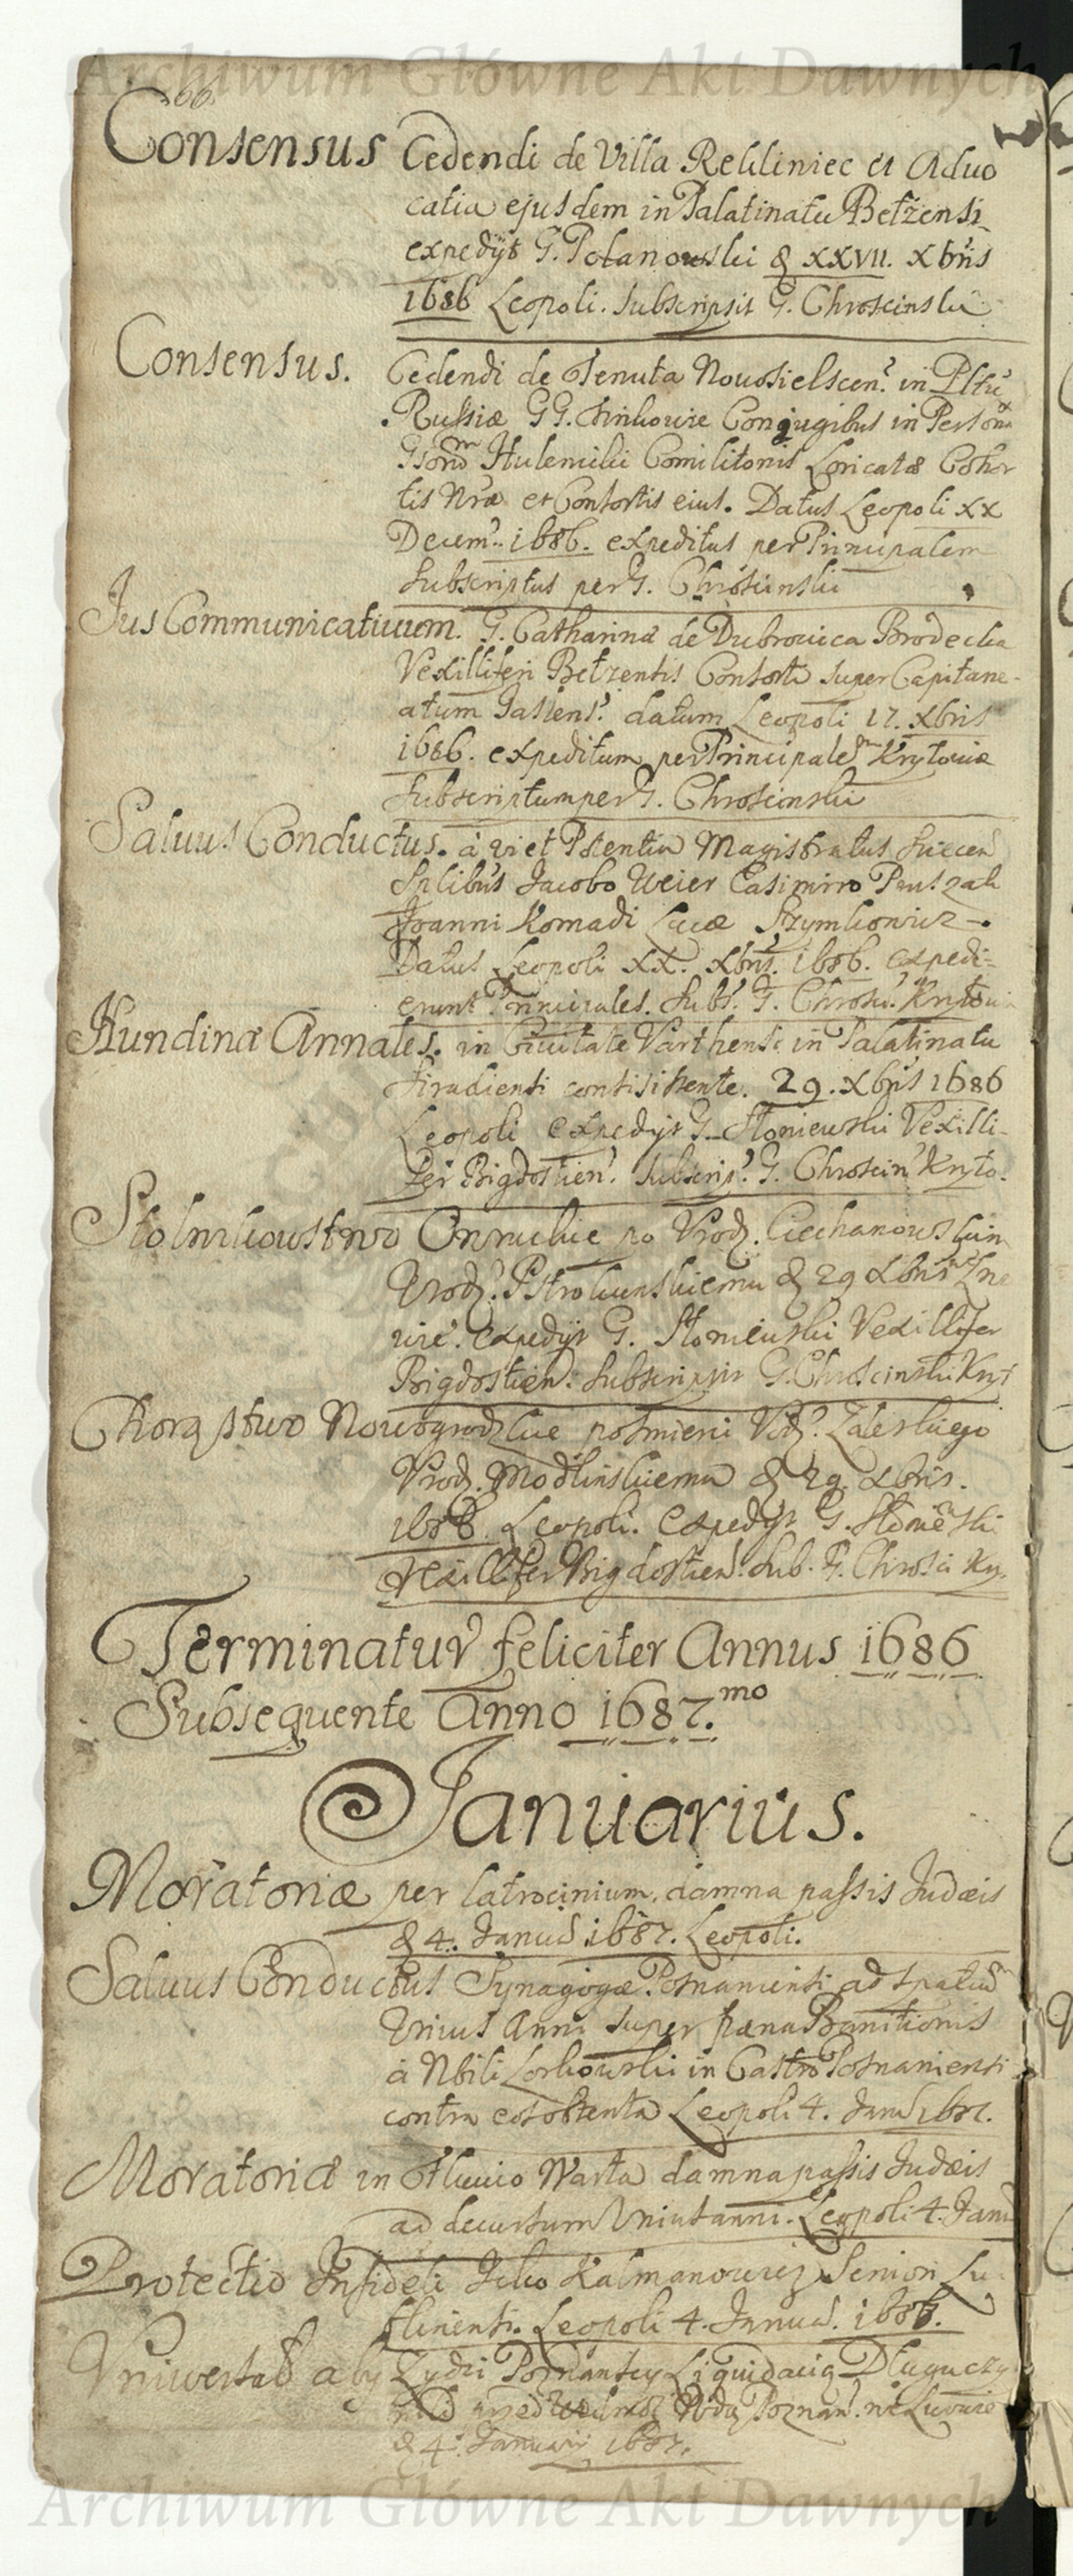 Archiwum Główne Akt Dawnych
66
Consensus Cedendi de Villa Rekliniec et Aduo
catia ejusdem in Palatinatu Betzensi
expedijt G. Polanowski & XXVII. Xbris
1686 Leopoli. Subscripsit G. Chroscinski
Consensus. Cedendi de Tenuta Nouosielscen: in Pltu
Russiæ GG. Coniugibus in Person
Hulemikii Comilitonis Loricatæ Cohor
tis Nræ et Consortis eius. Datus Leopoli XX
Decem: 1686. expeditus per Principalem
Subscriptus per G. Chroscinski
Jus Communicatiuum. G. Catharinæ de Dubrouica Brodecka
Vexilliferi Betzensis Consorti super Capitane-
atum Jasiens: datum Leopoli 17. Xbris
1686. expeditum per Principalem Krytowiæ
Subscriptum per G. Chroscinski
Saluus Conductus. à vi et Potentia Magistratus
Jacobo Weier Casimiro
Joanni Komadi Lucæ Szymkowicz
Datus Leopoli XX. Xbris. 1686. expedi-
erunt Principales. Subs: G. Chrosci:
Nundinæ Annales. in Ciuitate Varthensi in Palatinatu
Siradiensi consistente. 29. Xbris 1686
Leopoli expedijt G. Słoniewski Vexilli-
fer Bigdostien: Subscrip: G. Chroscin: Kryto.
Stolnikowstwo Owruckie po Vrodz. Ciechanowskim
Vrodz: Pstrokunskiemu & 29 Xbris
expedijt G. Słoniewski Vexillifer
Bigdostien: Subscripsit G. Chroscinski Kryt
Chorąstwo Nowogrodzkie po smierci Vrdz: Zaleskiego
Vrodz. Modlinskiemu & 29. Xbris.
1686. Leopoli. Expedijt G. Słoniewski
Vexillifer Bigdostien: Sub. G. Chrosci Kry.
Terminatur feliciter Annus 1686
Subsequente Anno 1687.mo
Januarius.
Moratoriæ per latrocinium damna passis Judæis
& 4. Januar 1687. Leopoli.
Saluus Conductus Synagogæ Posnaniensi ad spatium
Vnius Anni super pæna Banitionis
à Nbili Lorkowski in Castro Posnaniensi
contra eos obtenta Leopoli 4. Janu 1687.
Moratoriæ in Fluuio Warta damna passis Judæis
ad decursum Vnius anni. Leopoli 4. Janu
Protectio Infideli Icko Kalmanowicz Seniori Lu-
blinensi. Leopoli 4. Januar. 1686.
Vniwersał aby Zydzi Poznanscy Liquidacią Długu
Poznan: we Lwowie
& 4. Januarij 1687.
Archiwum Główne Akt Dawnych